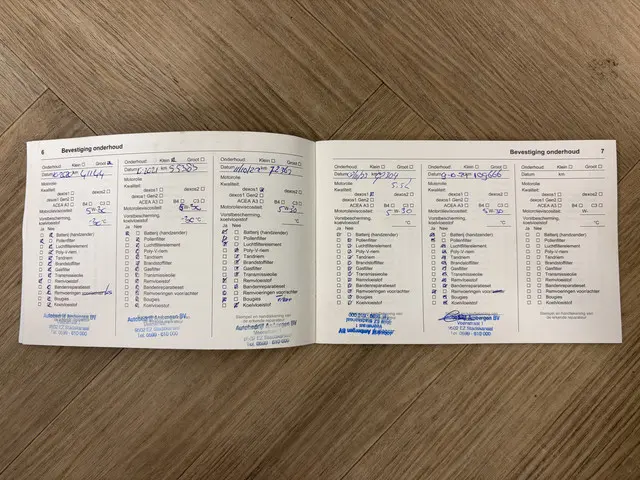 6 Bevestiging onderhoud
Onderhoud: Klein Groot
Datum km 41144
Motorolie:
Kwaliteit:
dexos1 dexos2
dexos1 Gen2
ACEA A3 B4 C3
Motorolieviscositeit: 5W-30
Vorstbescherming,
koelvloeistof -30°C
Ja Nee
Batterij (handzender)
Pollenfilter
Luchtfilterelement
Poly-V-riem
Tandriem
Brandstoffilter
Gasfilter
Transmissieolie
Remvloeistof
Bandenreparatieset
Remvoeringen voor/achter
Bougies
Koelvloeistof
Autobedrijf Ambergen BV
9502 EZ Stadskanaal
Tel. 0599 - 610 000
Onderhoud: Klein Groot
Datum km 55385
Motorolie:
Kwaliteit:
dexos1 dexos2
dexos1 Gen2
ACEA A3 B4 C3
Motorolieviscositeit: 5W-30
Vorstbescherming,
koelvloeistof -30°C
Ja Nee
Batterij (handzender)
Pollenfilter
Luchtfilterelement
Poly-V-riem
Tandriem
Brandstoffilter
Gasfilter
Transmissieolie
Remvloeistof
Bandenreparatieset
Remvoeringen voor/achter
Bougies
Koelvloeistof
Autobedrijf Ambergen BV
Veenstraat 1
9502 EZ Stadskanaal
Tel. 0599 - 610 000
Onderhoud: Klein Groot
Datum km 72362
Motorolie:
Kwaliteit:
dexos1 dexos2
dexos1 Gen2
ACEA A3 B4 C3
Motorolieviscositeit: 5W-30
Vorstbescherming,
koelvloeistof °C
Ja Nee
Batterij (handzender)
Pollenfilter
Luchtfilterelement
Poly-V-riem
Tandriem
Brandstoffilter
Gasfilter
Transmissieolie
Remvloeistof
Bandenreparatieset
Remvoeringen voor/achter
Bougies
Koelvloeistof
Stempel en handtekening van
de erkende reparateur
Autobedrijf Ambergen BV
Veenstraat 1
9502 EZ Stadskanaal
Tel. 0599 - 610 000
Bevestiging onderhoud 7
Onderhoud: Klein Groot
Datum km
Motorolie:
Kwaliteit:
dexos1 dexos2
dexos1 Gen2
ACEA A3 B4 C3
Motorolieviscositeit: 5W-30
Vorstbescherming,
koelvloeistof °C
Ja Nee
Batterij (handzender)
Pollenfilter
Luchtfilterelement
Poly-V-riem
Tandriem
Brandstoffilter
Gasfilter
Transmissieolie
Remvloeistof
Bandenreparatieset
Remvoeringen voor/achter
Bougies
Koelvloeistof
Tel. 0599 - 610 000
9502 EZ Stadskanaal
Veenstraat 1
Autobedrijf Ambergen BV
Onderhoud: Klein Groot
Datum km 105666
Motorolie:
Kwaliteit:
dexos1 dexos2
dexos1 Gen2
ACEA A3 B4 C3
Motorolieviscositeit: 5W-30
Vorstbescherming,
koelvloeistof °C
Ja Nee
Batterij (handzender)
Pollenfilter
Luchtfilterelement
Poly-V-riem
Tandriem
Brandstoffilter
Gasfilter
Transmissieolie
Remvloeistof
Bandenreparatieset
Remvoeringen voor/achter
Bougies
Koelvloeistof
Ambergen BV
Veenstraat 1
9502 EZ Stadskanaal
Tel. 0599 - 610 000
Onderhoud: Klein Groot
Datum km
Motorolie:
Kwaliteit:
dexos1 dexos2
dexos1 Gen2
ACEA A3 B4 C3
Motorolieviscositeit: W-
Vorstbescherming,
koelvloeistof °C
Ja Nee
Batterij (handzender)
Pollenfilter
Luchtfilterelement
Poly-V-riem
Tandriem
Brandstoffilter
Gasfilter
Transmissieolie
Remvloeistof
Bandenreparatieset
Remvoeringen voor/achter
Bougies
Koelvloeistof
Stempel en handtekening van
de erkende reparateur